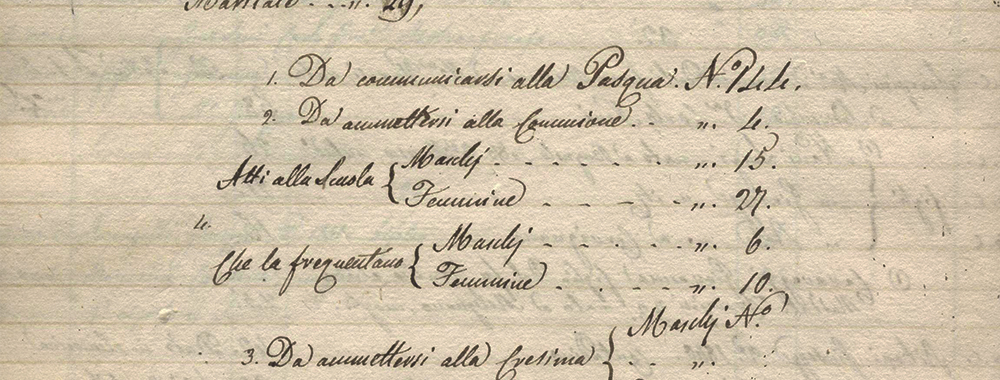 Maritate . . „. 29,
1. Da communicarsi alla Pasqua. N. 744.
2. Da ammettersi alla Comunione. . „. 4.
Atti alla Scuola { Maschj. . . . . . . „. 15.
Femmine . - - . - „. 27.
4.
Che la frequentano { Maschj . . . . . . „. 6.
Femmine . . . . . „. 10.
3. Da ammettersi alla Cresima { Maschj N.º